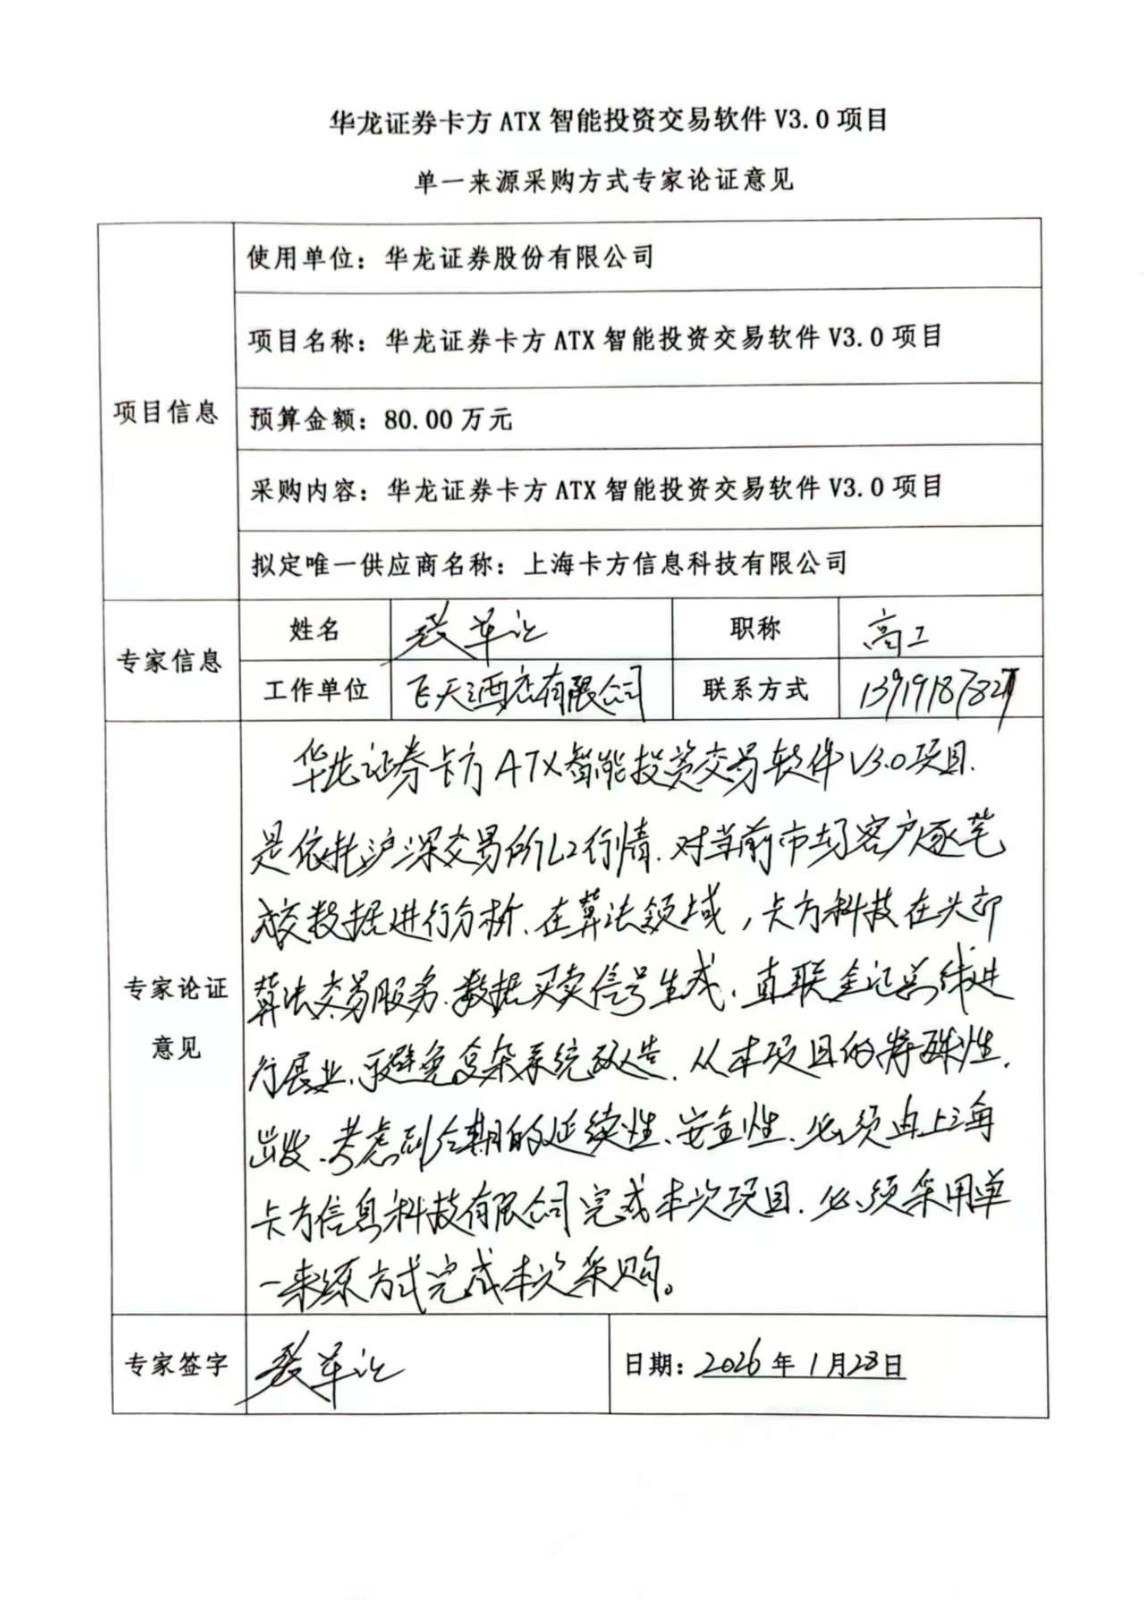 华龙证券卡方 ATX 智能投资交易软件 V3.0 项目
单一来源采购方式专家论证意见
项目信息
使用单位：华龙证券股份有限公司
项目名称：华龙证券卡方 ATX 智能投资交易软件 V3.0 项目
预算金额：80.00 万元
采购内容：华龙证券卡方 ATX 智能投资交易软件 V3.0 项目
拟定唯一供应商名称：上海卡方信息科技有限公司
专家信息
姓名
职称 高工
工作单位 飞天酒店有限公司
联系方式
专家论证
意见
华龙证券卡方ATX智能投资交易软件V3.0项目.
是依托沪深交易所L2行情.对当前市场客户逐笔
成交数据进行分析.在算法领域，卡方科技在头部
算法交易服务.数据买卖信号生成.直联金证总线进
行展业.可避免复杂系统改造.从本项目的特殊性.
出发.考虑到后期的延续性、安全性.必须由上海
卡方信息科技有限公司完成本次项目.必须采用单
一来源方式完成本次采购。
专家签字
日期：2026年1月28日